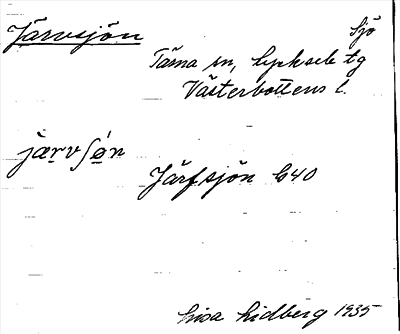 Järvsjön
Sjö
Tärna sn, Lycksele tg
Västerbottens l.
jærvʃøn
Järfsjön G40
Lisa Lidberg 1935